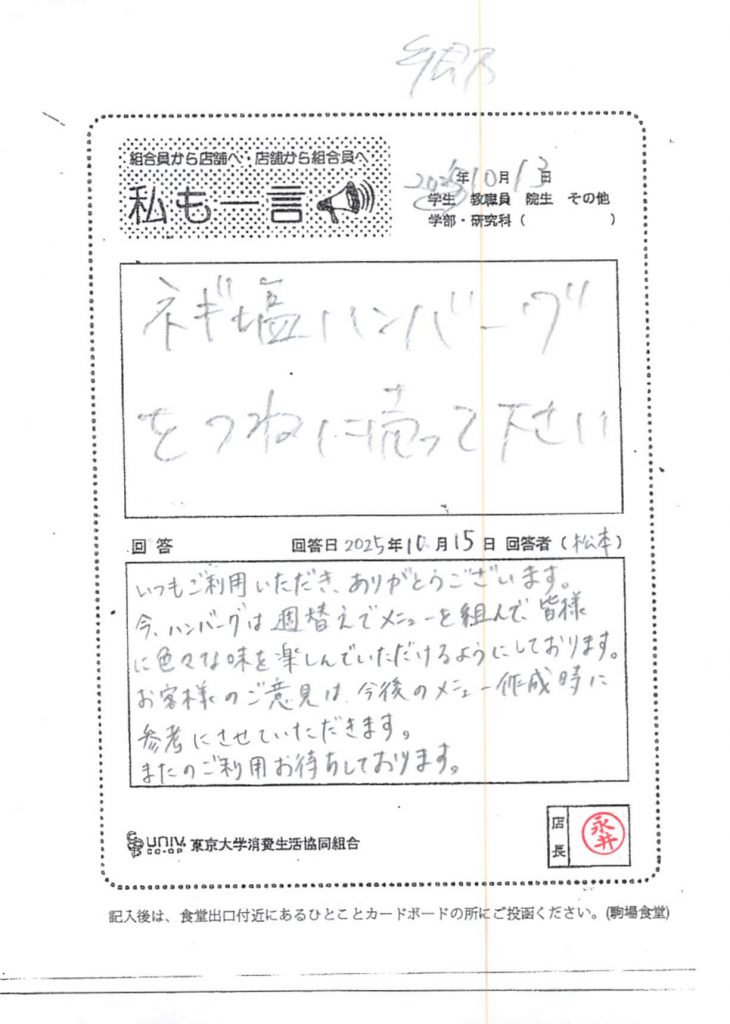 組合員から店舗へ・店舗から組合員へ
私も一言
2025年10月13日
学生 教職員 院生 その他
学部・研究科( )
ネギ塩ハンバーグ
をつねに売って下さい
回答 回答日2025年10月15日 回答者(松本)
いつもご利用いただき、ありがとうございます。
今、ハンバーグは週替えでメニューを組んで、皆様
に色々な味を楽しんでいただけるようにしております。
お客様のご意見は、今後のメニュー作成時に
参考にさせていただきます。
またのご利用お待ちしております。
univ. co-op 東京大学消費生活協同組合
店長 永井
記入後は、食堂出口付近にあるひとことカードボードの所にご投函ください。(駒場食堂)